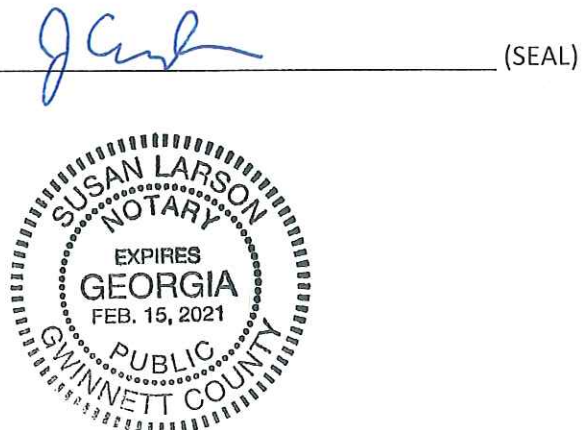 (SEAL)
SUSAN LARSON
NOTARY
EXPIRES
GEORGIA
FEB. 15, 2021
PUBLIC
GWINNETT COUNTY